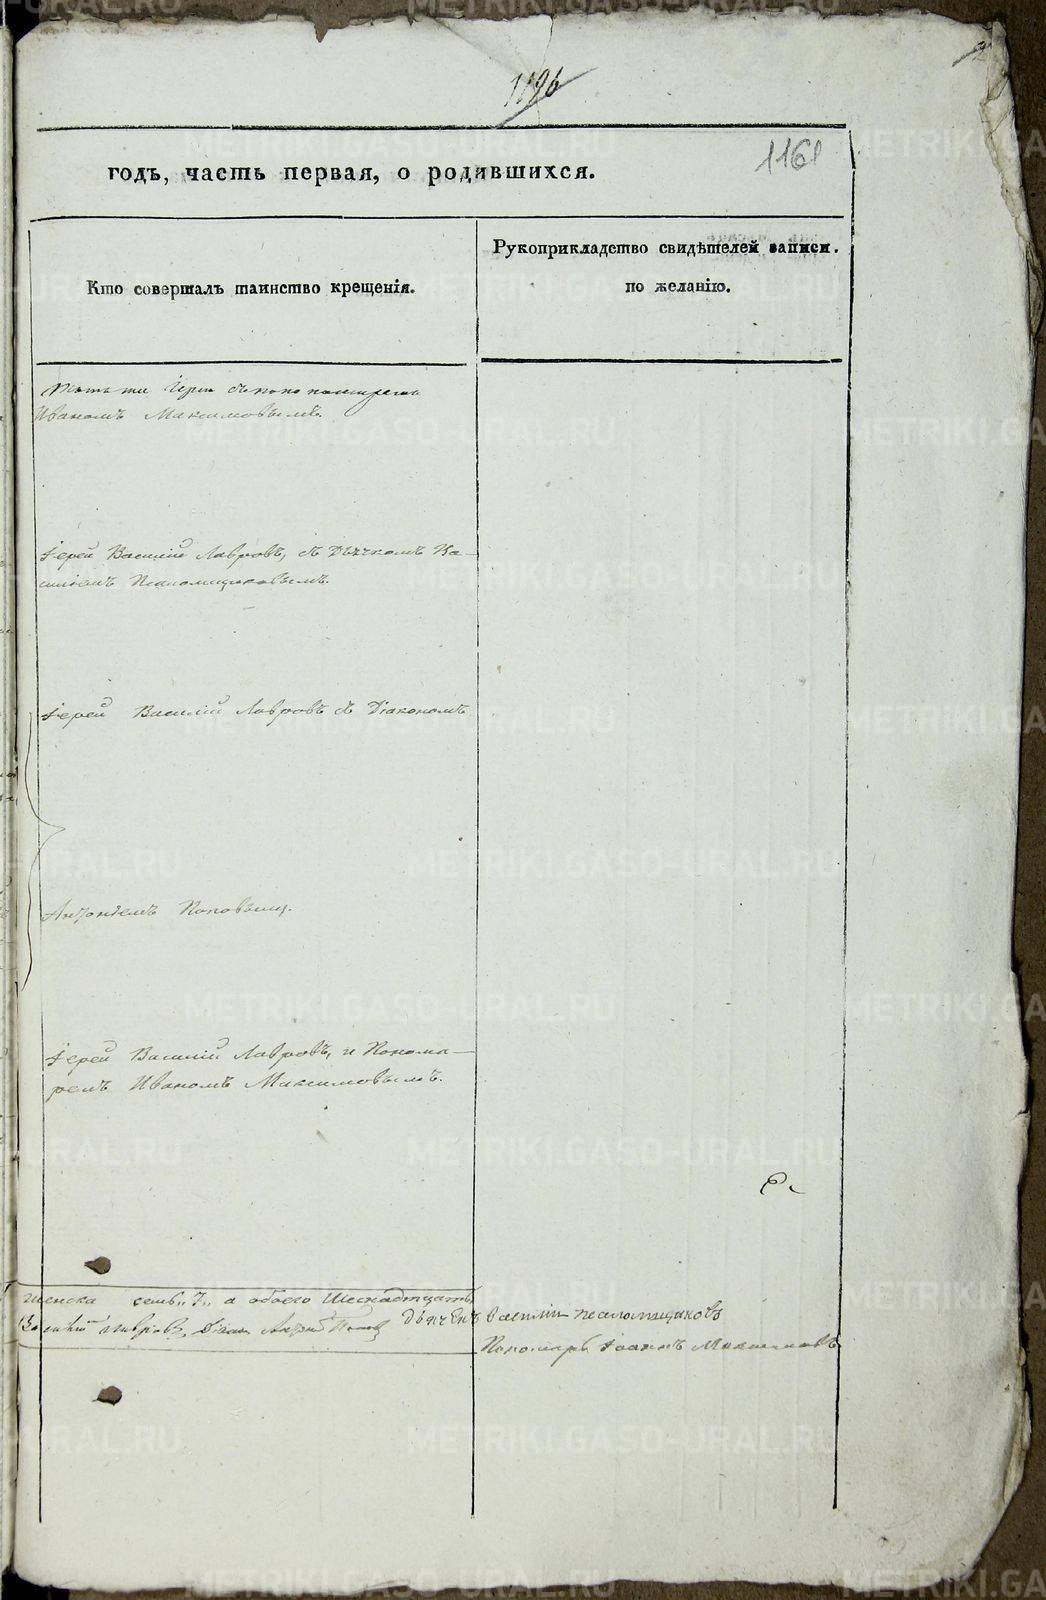 1196
1161
годъ, часть первая, о родившихся.
Кто совершалъ таинство крещенія.
Рукоприкладство свидѣтелей записи.
по желанію.
Иваномъ Максимовымъ.
Іерей Василій Лавровъ, съ Дьячкомъ Ва-
силіемъ Псаломщиковымъ.
Іерей Василій Лавровъ съ Діакономъ
Поповымъ.
Іерей Василій Лавровъ, и Понома-
ремъ Иваномъ Максимовымъ.
женска семь „7„ а обоего Шеснадтцать
Василій Лавровъ, Діакон Поповъ Дьячекъ Василіи Псаломщиковъ
Пономарь Іоаннъ Максимовъ
METRIKI.GASO-URAL.RU